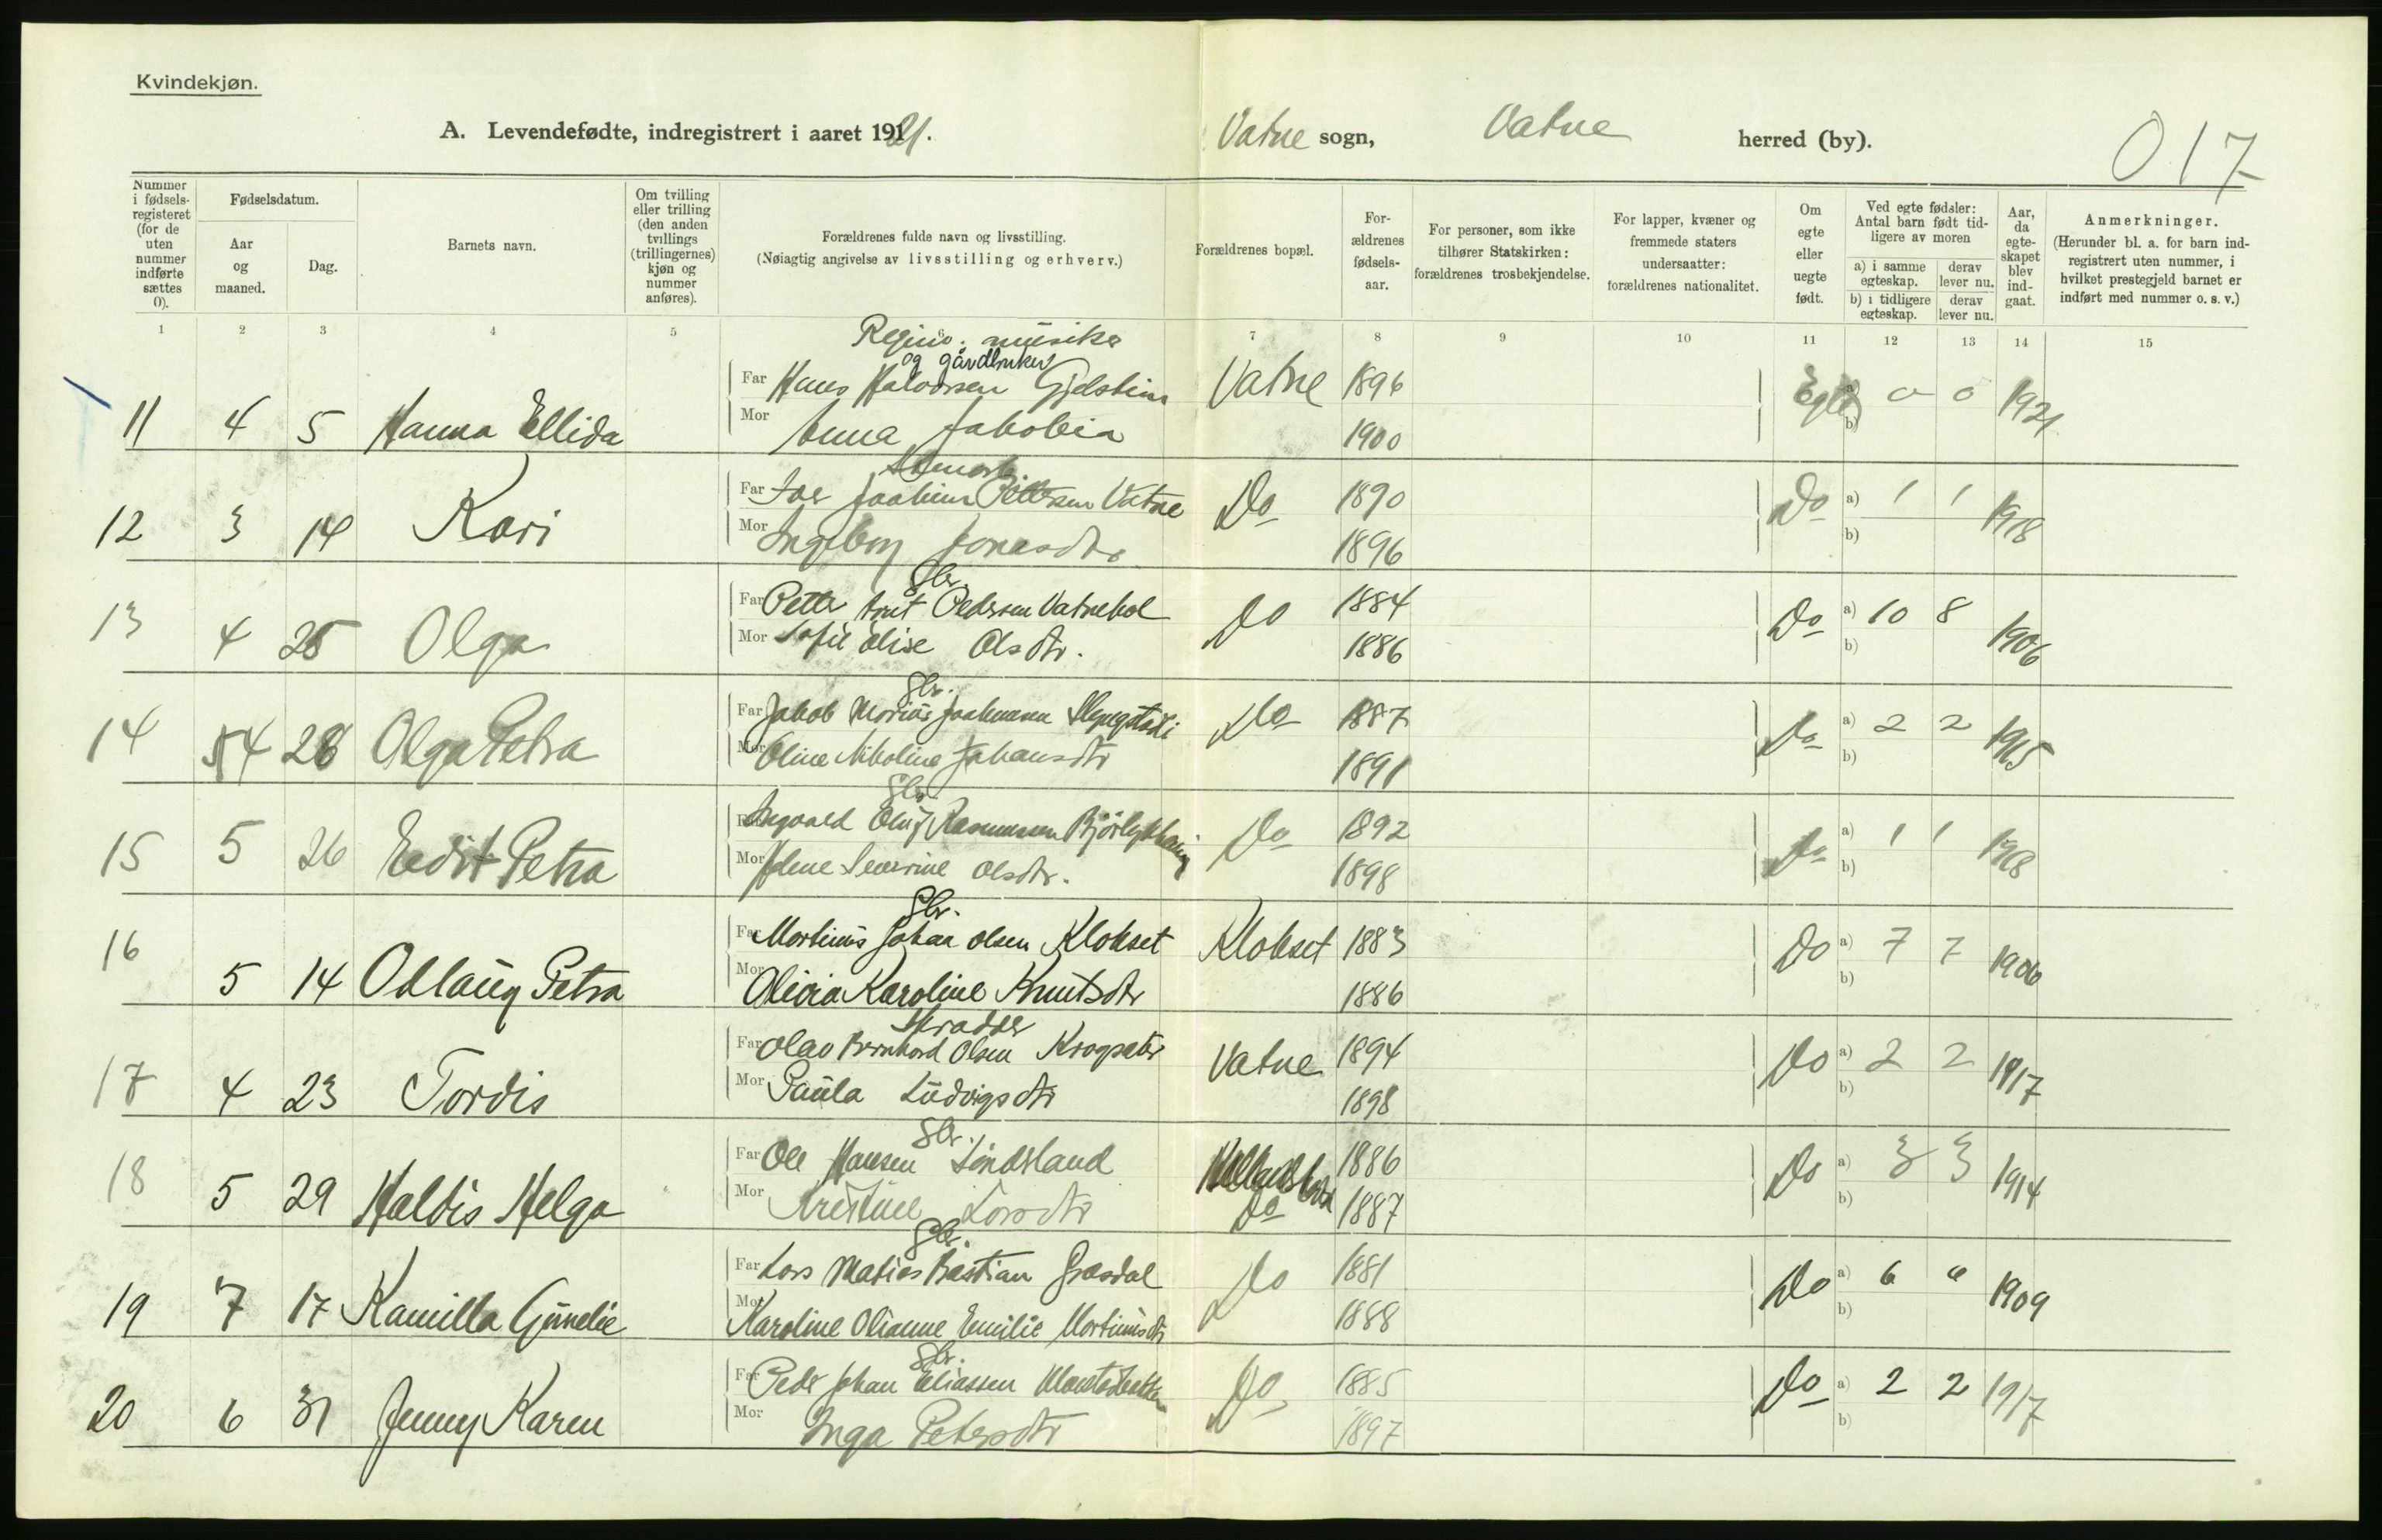 Kvindekjøn.
A. Levendefødte, indregistrert i aaret 1921.
Vatne sogn, Vatne herred (by).
017
Nummer i fødselsregisteret (for de uten nummer indførte sættes 0).
Fødselsdatum.
Aar og maaned.
Dag.
Barnets navn.
Om tvilling eller trilling (den anden tvillings (trillingernes) kjøn og nummer anføres).
Forældrenes fulde navn og livsstilling.
(Nøiagtig angivelse av livsstilling og erhverv.)
Forældrenes bopæl.
For-ældrenes fødsels-aar.
For personer, som ikke tilhører Statskirken: forældrenes trosbekjendelse.
For lapper, kvæner og fremmede staters undersaatter: forældrenes nationalitet.
Om egte eller uegte født.
Ved egte fødsler: Antal barn født tidligere av moren
a) i samme egteskap. derav lever nu.
b) i tidligere egteskap. derav lever nu.
Aar, da egteskapet blev indgaat.
Anmerkninger.
(Herunder bl. a. for barn indregistrert uten nummer, i hvilket prestegjeld barnet er indført med nummer o. s. v.)
1 2 3 4 5 6 7 8 9 10 11 12 13 14 15
musiker
og gårdbruker
11 4 5 Hanna Ellida Far Hans Halvorsen Gjelstein Vatne 1896 Egte a) 0 0 1921
Mor Anna Jakobia 1900 b)
12 3 14 Kari Far Joakim Pettersen Vatne Do 1890 Do a) 1 1 1918
Mor Ingeborg Jonasdtr 1896 b)
Gbr.
13 4 25 Olga Far Petter Knut Pedersen Vatnehol Do 1884 Do a) 10 8 1906
Mor Sofie Elise Olsdtr. 1886 b)
Gbr.
14 4 28 Olga Petra Far Jakob Marius Joakimsen Do 1887 Do a) 2 2 1915
Mor Oline Nikoline Johansdtr 1891 b)
Gbr.
15 5 26 Edit Petra Far Ingvald Oluf Rasmussen Bjørlykhaug Do 1892 Do a) 1 1 1918
Mor Severine Olsdtr. 1898 b)
Gbr.
16 5 14 Odlaug Petra Far Martinus Johan Olsen Klokset Klokset 1883 Do a) 7 7 1906
Mor Olivia Karoline Knutsdtr 1886 b)
Skradder
17 4 23 Tordis Far Olav Bernhard Olsen Krogsæter Vatne 1894 Do a) 2 2 1917
Mor Paula Ludvigsdtr 1898 b)
Gbr.
18 5 29 Haldis Helga Far Ole Hansen Sønderland 1886 Do a) 3 3 1914
Mor Kristine Larsdtr Do 1887 b)
Gbr.
19 7 17 Kamilla Gunelie Far Lars Matias Bastian Græsdal Do 1881 Do a) 6 6 1909
Mor Karoline Olianne Emilie Martinusdtr 1888 b)
Gbr.
20 6 31 Jenny Karen Far Peder Johan Eliassen Do 1885 Do a) 2 2 1917
Mor Inga Petersdtr 1897 b)